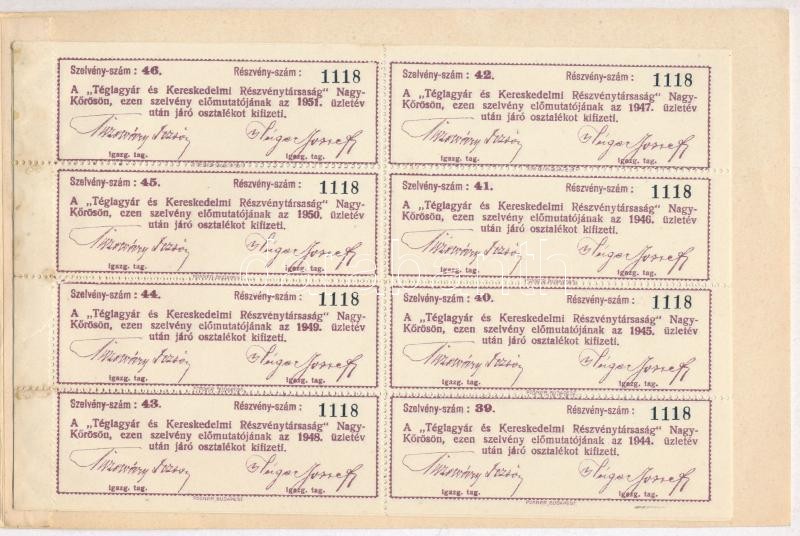 Szelvény-szám : 46. Részvény-szám : 1118
A „Téglagyár és Kereskedelmi Részvénytársaság" Nagy-
Kőrösön, ezen szelvény előmutatójának az 1951. üzletév
után járó osztalékot kifizeti.
igazg. tag.
Szelvény-szám : 45. Részvény-szám : 1118
A „Téglagyár és Kereskedelmi Részvénytársaság" Nagy-
Kőrösön, ezen szelvény előmutatójának az 1950. üzletév
után járó osztalékot kifizeti.
igazg. tag.
Szelvény-szám : 44. Részvény-szám : 1118
A „Téglagyár és Kereskedelmi Részvénytársaság" Nagy-
Kőrösön, ezen szelvény előmutatójának az 1949. üzletév
után járó osztalékot kifizeti.
igazg. tag.
Szelvény-szám : 43. Részvény-szám : 1118
A „Téglagyár és Kereskedelmi Részvénytársaság" Nagy-
Kőrösön, ezen szelvény előmutatójának az 1948. üzletév
után járó osztalékot kifizeti.
igazg. tag.
POSNER, BUDAPEST.
Szelvény-szám : 42. Részvény-szám : 1118
A „Téglagyár és Kereskedelmi Részvénytársaság" Nagy-
Kőrösön, ezen szelvény előmutatójának az 1947. üzletév
után járó osztalékot kifizeti.
igazg. tag.
Szelvény-szám : 41. Részvény-szám : 1118
A „Téglagyár és Kereskedelmi Részvénytársaság" Nagy-
Kőrösön, ezen szelvény előmutatójának az 1946. üzletév
után járó osztalékot kifizeti.
igazg. tag.
Szelvény-szám : 40. Részvény-szám : 1118
A „Téglagyár és Kereskedelmi Részvénytársaság" Nagy-
Kőrösön, ezen szelvény előmutatójának az 1945. üzletév
után járó osztalékot kifizeti.
igazg. tag.
Szelvény-szám : 39. Részvény-szám : 1118
A „Téglagyár és Kereskedelmi Részvénytársaság" Nagy-
Kőrösön, ezen szelvény előmutatójának az 1944. üzletév
után járó osztalékot kifizeti.
igazg. tag.
POSNER, BUDAPEST.